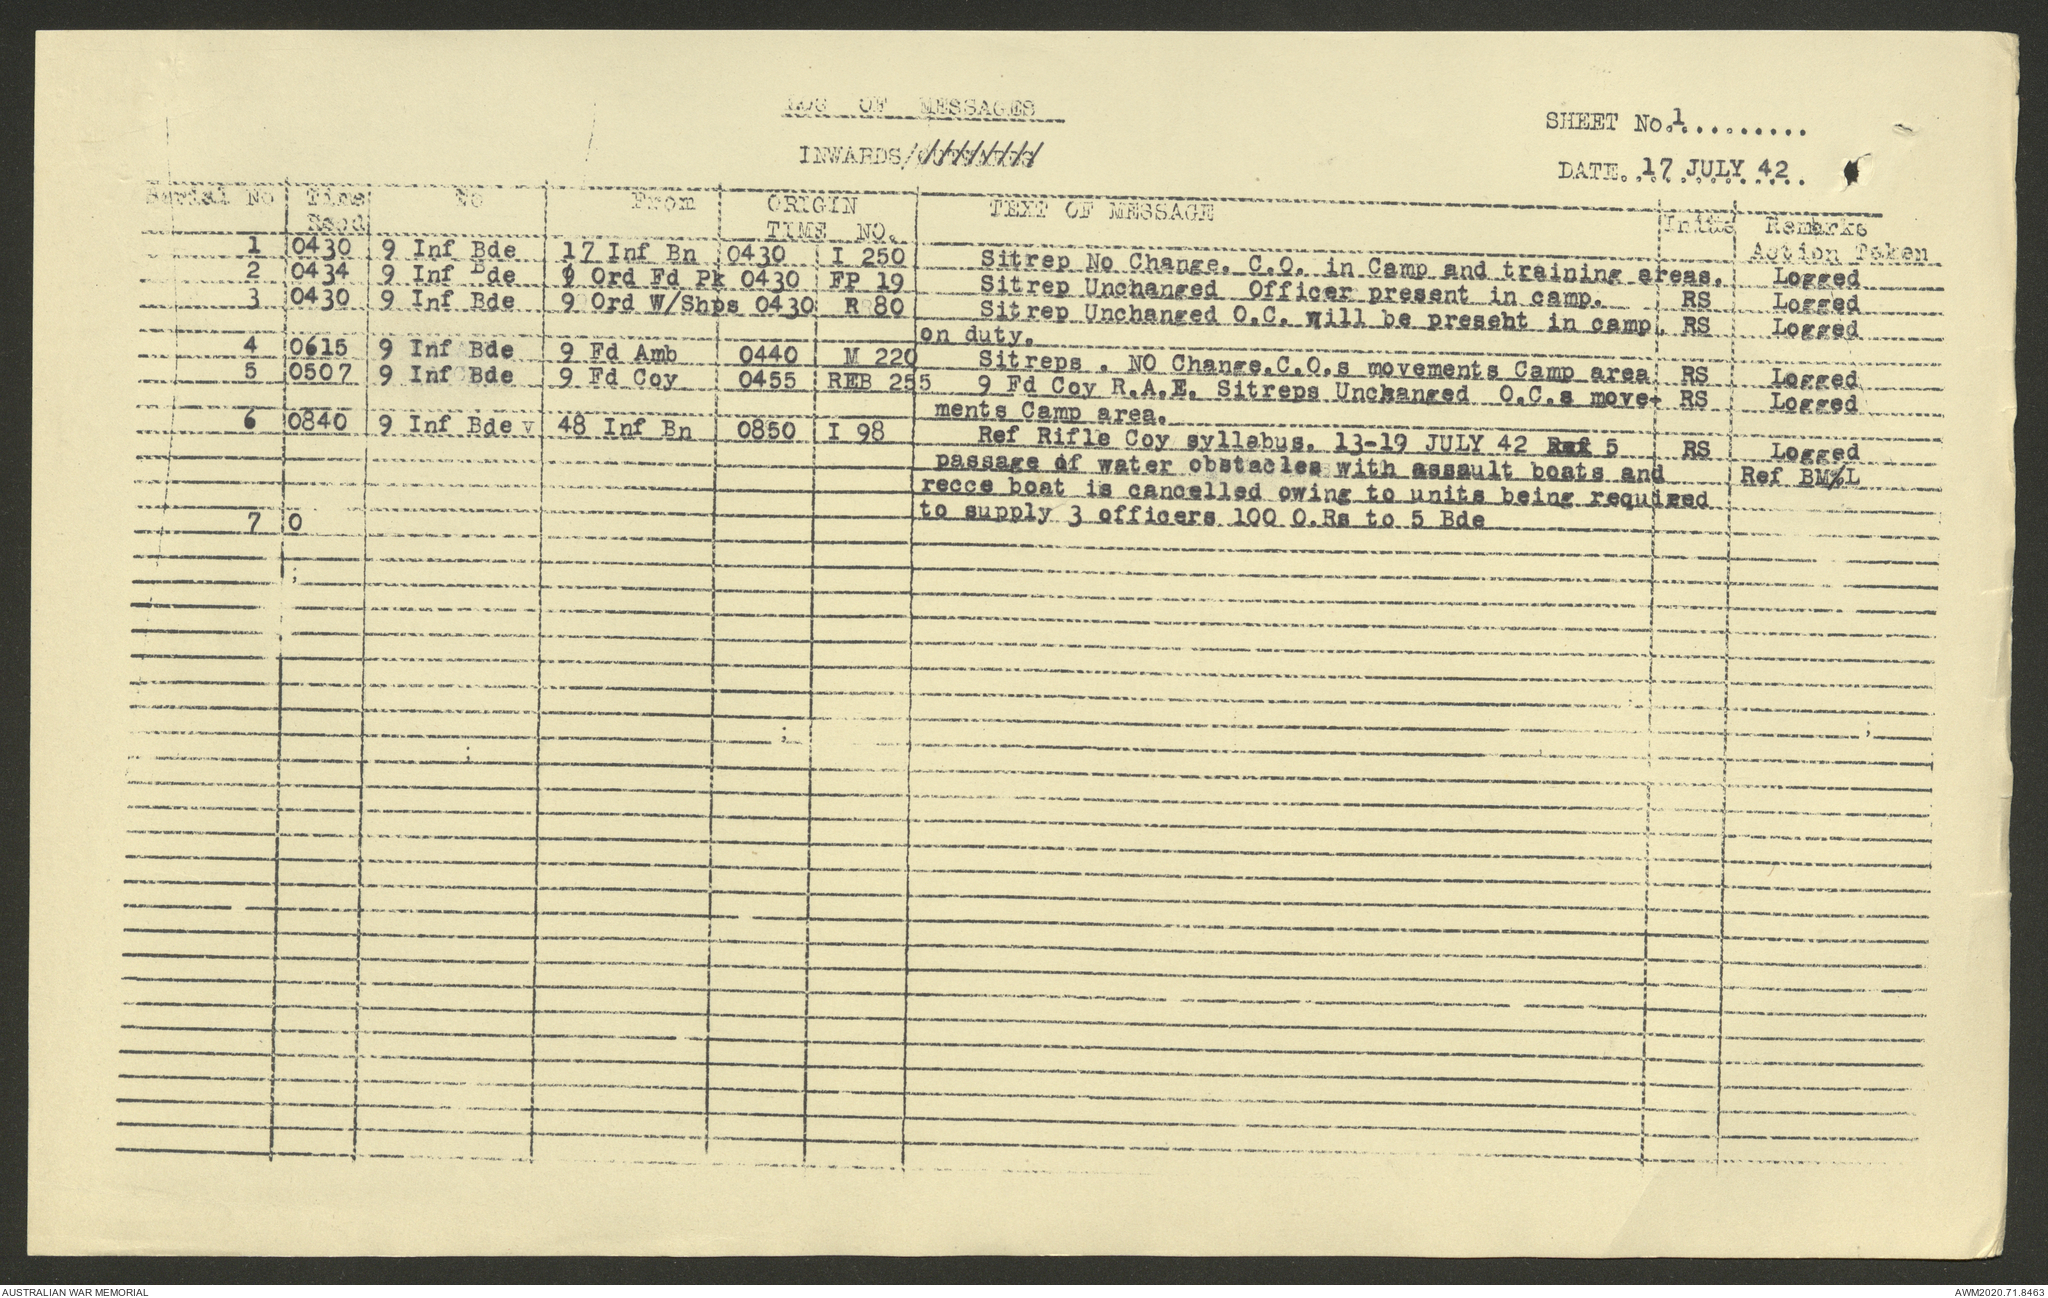 LOG OF MESSAGES
SHEET No.1.........
INWARDS/OUTWARDS
DATE. 17 JULY 42 .
Serial No Time To From ORIGIN TEXT OF MESSAGE Initls Remarks
Recd TIME NO. Action Taken
1 0430 9 Inf Bde 17 Inf Bn 0430 I 250 Sitrep No Change. C.O. in Camp and training areas. Logged
2 0434 9 Inf Bde 9 Ord Fd Pk 0430 FP 19 Sitrep Unchanged Officer present in camp. RS Logged
3 0430 9 Inf Bde 9 Ord W/Shps 0430 R 80 Sitrep Unchanged O.C. will be present in camp. RS Logged
on duty.
4 0615 9 Inf Bde 9 Fd Amb 0440 M 220 Sitreps . NO Change.C.O.s movements Camp area RS Logged
5 0507 9 Inf Bde 9 Fd Coy 0455 REB 255 9 Fd Coy R.A.E. Sitreps Unchanged O.C.s move- RS Logged
ments Camp area.
6 0840 9 Inf Bde v 48 Inf Bn 0850 I 98 Ref Rifle Coy syllabus. 13-19 JULY 42 Ref 5 RS Logged
passage of water obstacles with assault boats and Ref BM/L
recce boat is cancelled owing to units being required
to supply 3 officers 100 O.Rs to 5 Bde
7 0
AUSTRALIAN WAR MEMORIAL
AWM2020.71.8463